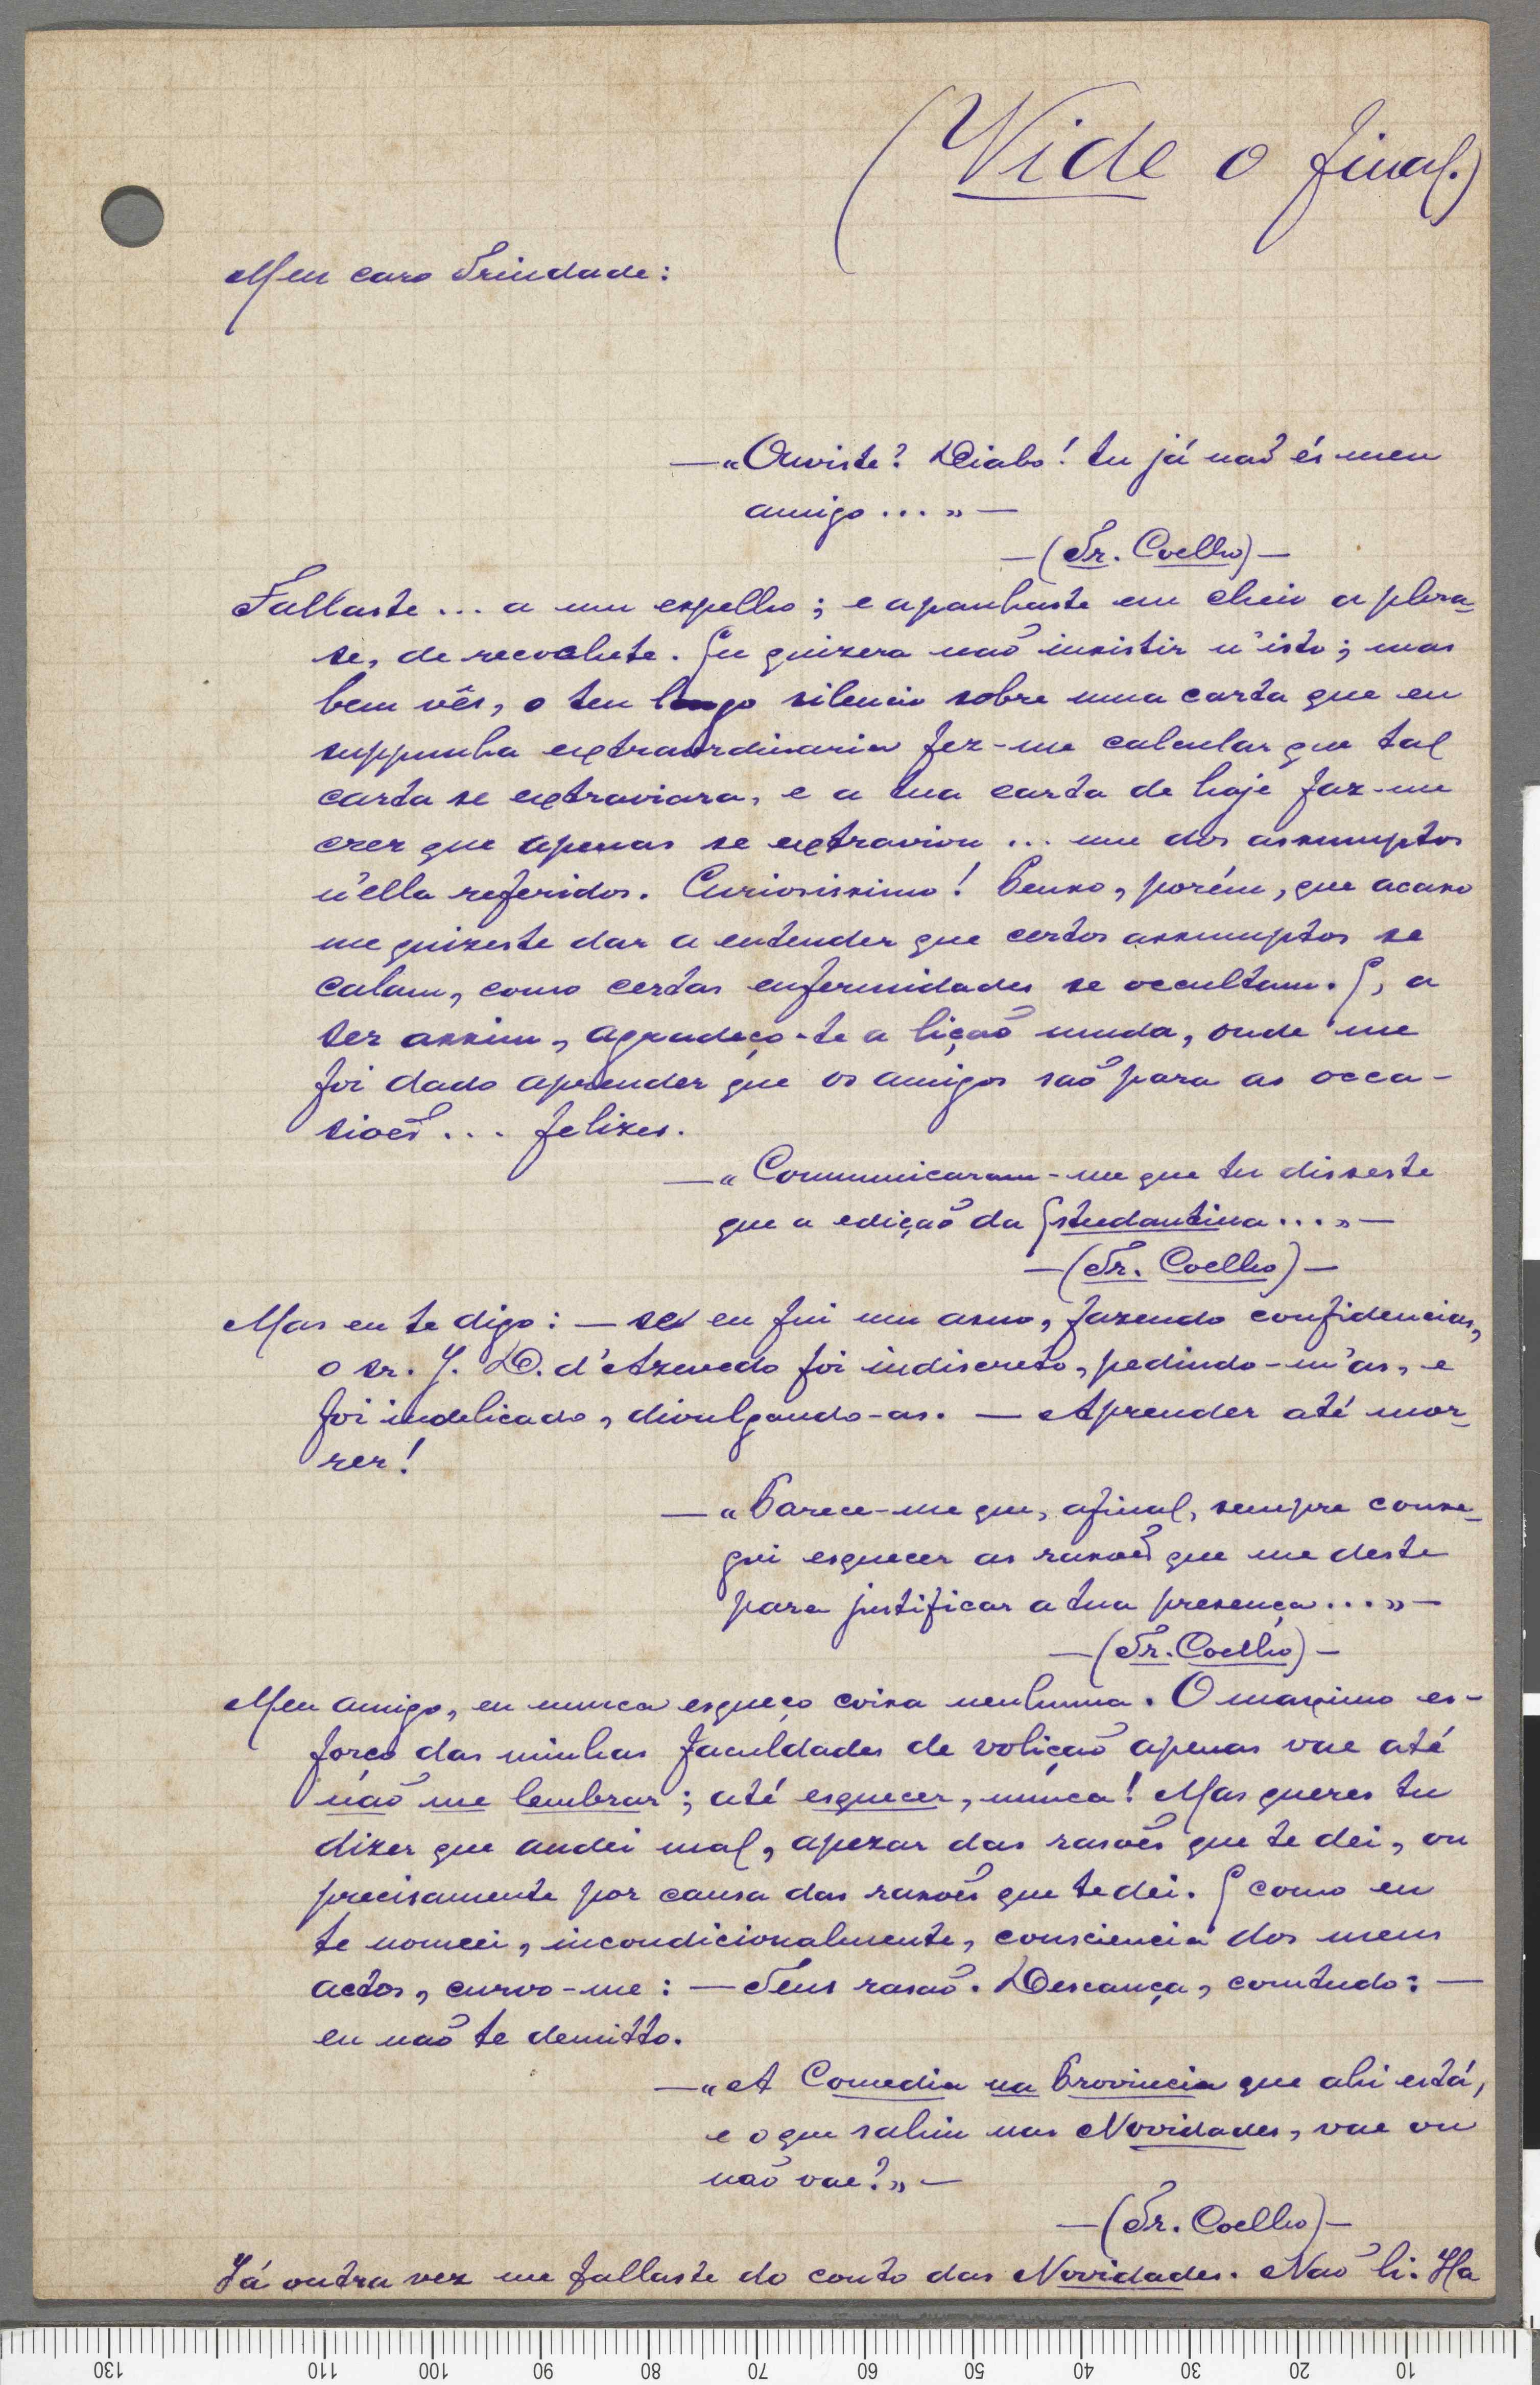 (Vide o final.)
Meu caro Trindade:
—"Ouviste? Diabo! tu já não és meu
amigo..."—
—(Tr. Coelho)—
Fallaste... a um espelho; e apanhaste em cheio a phra-
se, de recochete. Eu quizera não insistir n'isto; mas
bem vês, o teu longo silencio sobre uma carta que eu
suppunha extraordinaria fez-me calcular que tal
carta se extraviara, e a tua carta de hoje faz-me
crer que apenas se extraviou... um dos assumptos
n'ella referidos. Curiosissimo! Penso, porém, que acaso
me quizeste dar a entender que certos assumptos se
calam, como certas enfermidades se occultam. E, a
ser assim, agradeço-te a lição muda, onde me
foi dado aprender que os amigos são para as occa-
siões... felizes.
—"Communicaram-me que tu disseste
que a edição da Estudantina..."—
—(Tr. Coelho)—
Mas eu te digo: — se eu fui um asno, fazendo confidencias,
o sr. J. D. d'Azevedo foi indiscreto, pedindo-m'as, e
foi indelicado, divulgando-as. — Aprender até mor-
rer!
—"Parece-me que, afinal, sempre conse-
gui esquecer as rasões que me deste
para justificar a tua presença..."—
—(Tr. Coelho)—
Meu amigo, eu nunca esqueço coisa nenhuma. O maximo es-
forço das minhas faculdades de volição apenas vae até
não me lembrar; até esquecer, nunca! Mas queres tu
dizer que andei mal, apezar das rasões que te dei, ou
precisamente por causa das rasões que te dei. E como eu
te nomeei, incondicionalmente, consciencia dos meus
actos, curvo-me: — Tens rasão. Descança, comtudo: —
eu não te demitto.
—"A Comedia na Provincia que ahi está,
e o que sahiu nas Novidades, vae ou
não vae?"—
—(Tr. Coelho)—
Já outra vez me fallaste do conto das Novidades. Não li. Ha
130 110 100 90 80 70 60 50 40 30 20 10